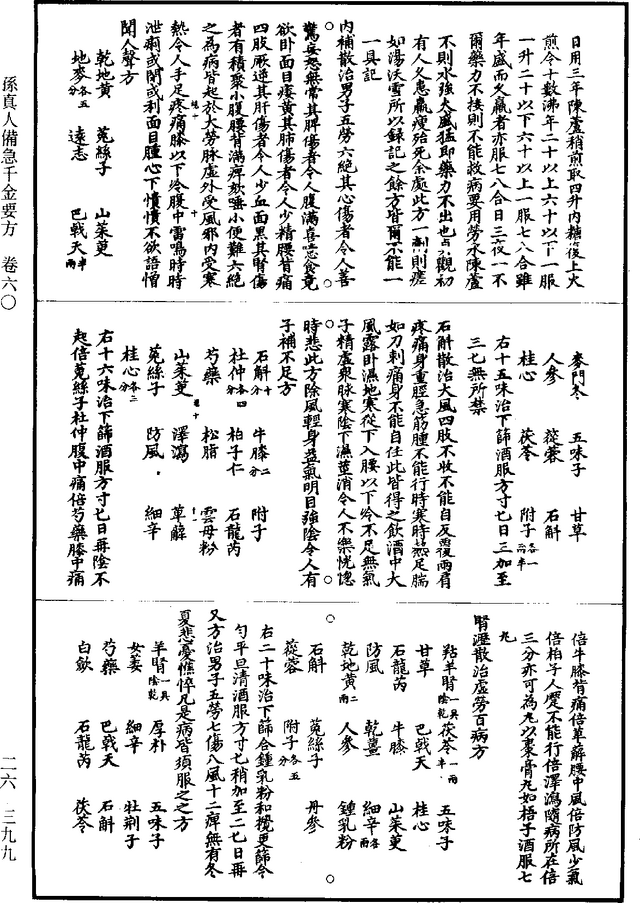 孫真人備急千金要方 卷六〇
二六‧三九九
日用三年陳蘆稍煎取四升內糖後上火
煎令十數沸年二十以上六十以下一服
一升二十以下六十以上一服七八合雖
年盛而久羸者亦服七八合日三夜一不
爾藥力不接則不能救病要用勞水陳蘆
不則水強火盛猛即藥力不出也貞觀初
有人久患羸瘦殆死余處此方一劑則瘥
如湯沃雪所以錄記之餘方皆爾不能一
一具記
內補散治男子五勞六絕其心傷者令人善
驚妄怒無常其脾傷者令人腹滿喜噫食竟
欲臥面目痿黃其肺傷者令人少精腰背痛
四肢厥逆其肝傷者令人少血面黑其腎傷
者有積聚小腹腰背滿痺欬唾小便難六絕
之為病皆起於大勞脉虛外受風邪內受寒
熱令人手足疼痛膝以下冷腹中雷鳴時時
泄痢或閉或利面目腫心下憒憒不欲語憎
聞人聲方
乾地黃 菟絲子 山茱萸
地麥各五分 遠志 巴戟天半兩
麥門冬 五味子 甘草
人參 蓯蓉 石斛
桂心 茯苓 附子各一兩半
右十五味治下篩酒服方寸匕日三加至
三匕無所禁
石斛散治大風四肢不收不能自反覆兩肩
疼痛身重脛急筋腫不能行時寒時熱足腨
如刀刺痛身不能自任此皆得之飲酒中大
風露臥濕地寒從下入腰以下冷不足無氣
子精虛衆脉寒陰下濕莖消令人不樂恍惚
時悲此方除風輕身益氣明目強陰令人有
子補不足方
石斛十分 牛膝二分 附子
杜仲各四分 柏子仁 石龍芮
芍藥 松脂 雲母粉
山茱萸 澤瀉 萆薢
菟絲子 防風 細辛
桂心各三分
右十六味治下篩酒服方寸匕日再陰不
起倍菟絲子杜仲腹中痛倍芍藥膝中痛
倍牛膝背痛倍萆薢腰中風倍防風少氣
倍柏子人蹷不能行倍澤瀉隨病所在倍
三分亦可為丸以棗膏丸如梧子酒服七
丸
腎瀝散治虛勞百病方
羖羊腎一具陰乾 茯苓一兩半 五味子
甘草 巴戟天 桂心
石龍芮 牛膝 山茱萸
防風 乾薑 細辛各一兩
乾地黃二兩 人參 鍾乳粉
石斛 菟絲子 丹參
蓯蓉 附子各五分
右二十味治下篩合鍾乳粉和攪更篩令
勻平旦清酒服方寸匕稍加至二匕日再
又方治男子五勞七傷八風十二痺無有冬
夏悲憂憔悴凡是病皆須服之之方
羊腎一具陰乾 厚朴 五味子
女萎 細辛 牡荊子
芍藥 巴戟天 石斛
白斂 石龍芮 茯苓